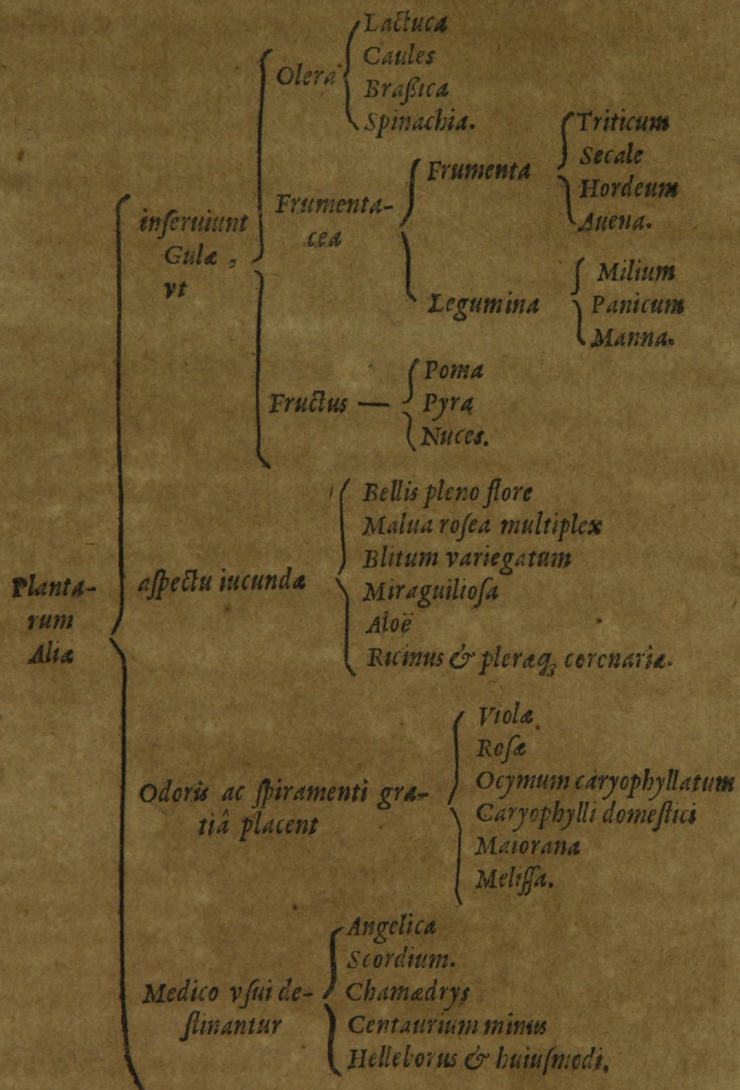 Planta-
rum
Aliæ
inſeruiunt
Gulæ,
vt
Olera
Lactuca
Caules
Braßica
Spinachia.
Frumenta-
cea
Frumenta
Triticum
Secale
Hordeum
Auena.
Legumina
Milium
Panicum
Manna.
Fructus —
Poma
Pyra
Nuces.
aſpectu iucundæ
Bellis pleno flore
Malua roſea multiplex
Blitum variegatum
Miraguilioſa
Aloë
Ricinus & pleræq; coronariæ.
Odoris ac ſpiramenti gra-
tiâ placent
Violæ
Roſæ
Ocymum caryophyllatum
Caryophylli domeſtici
Maiorana
Meliſſa.
Medico vſui de-
ſtinantur
Angelica
Scordium.
Chamædrys
Centaurium minus
Helleborus & huiuſmodi.